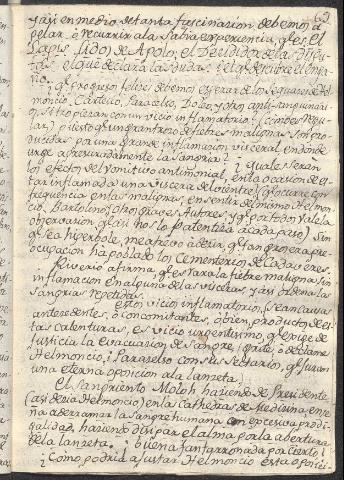 63
y asi en medio de tanta fascinacion, debemos a
pelar, ô recurrir a la Sabia experiencia, q̃ es el
Lapis Lidos de Apolo, el Decididor de las Dispu-
tas, el que declara las dudas, i el q̃ descubre el enga
ño.
¿q̃ progreso felices debemos esperar de los sequaces de Hel
moncio, Carteuo, Paracelso, Doleo, y otros anti-sanguinari
os, si tropiezan con un vicio inflamatorio? (como es regu
lar,) puesto q̃ un gran trozo de fiebres malignas son pro
ducidas por una grande inflamacion visceral en donde
urge apresuradamente la Sangria? ¿quale seran
los efectos del vomitivo antimonial, en la ocasion de es
tar inflamada una viscera del vientre (q̃ ocurre con
frequencia en las malignas, en sentir del mismo Helmon
cio, Bartolino, y otros graves Autores, y q̃ por todo vale la
observacion, q̃ asi nos lo patentiza a cada paso) Sin
q̃ sea hiperbole, me atrevo à decir, q̃ tan grosera pre
ocupacion ha poblado los Cementerios de Cadaveres.
Riverio afirma, q̃ es rara la fiebre maligna sin
inflamacion en alguna de las visceras, y asi ordena las
Sangrias repetidas.
estos vicios inflamatorios, Sean causas
antecedentes, ô concomitantes, ô bien, productos de es
tas calenturas, es vicio urgentisimo, q̃ exige de
Justicia la evacuacion de sangre: grite, ô declame
Helmoncio, i Paracelso con sus Sectarios, q̃ juran
una eterna oposicion a la lanzeta.
El Sangriento Moloh, haziendo de Presidente
(asi decia Helmoncio) en las Cathedras de Medizina, ense
ña a derramar la sangre humana con excesiva prodi
galidad, haziendo disipar el alma por la abertura
de la lanzeta. ¡buena fanfarronada por cierto!
¿Como podria ajustar Helmoncio esta oposici